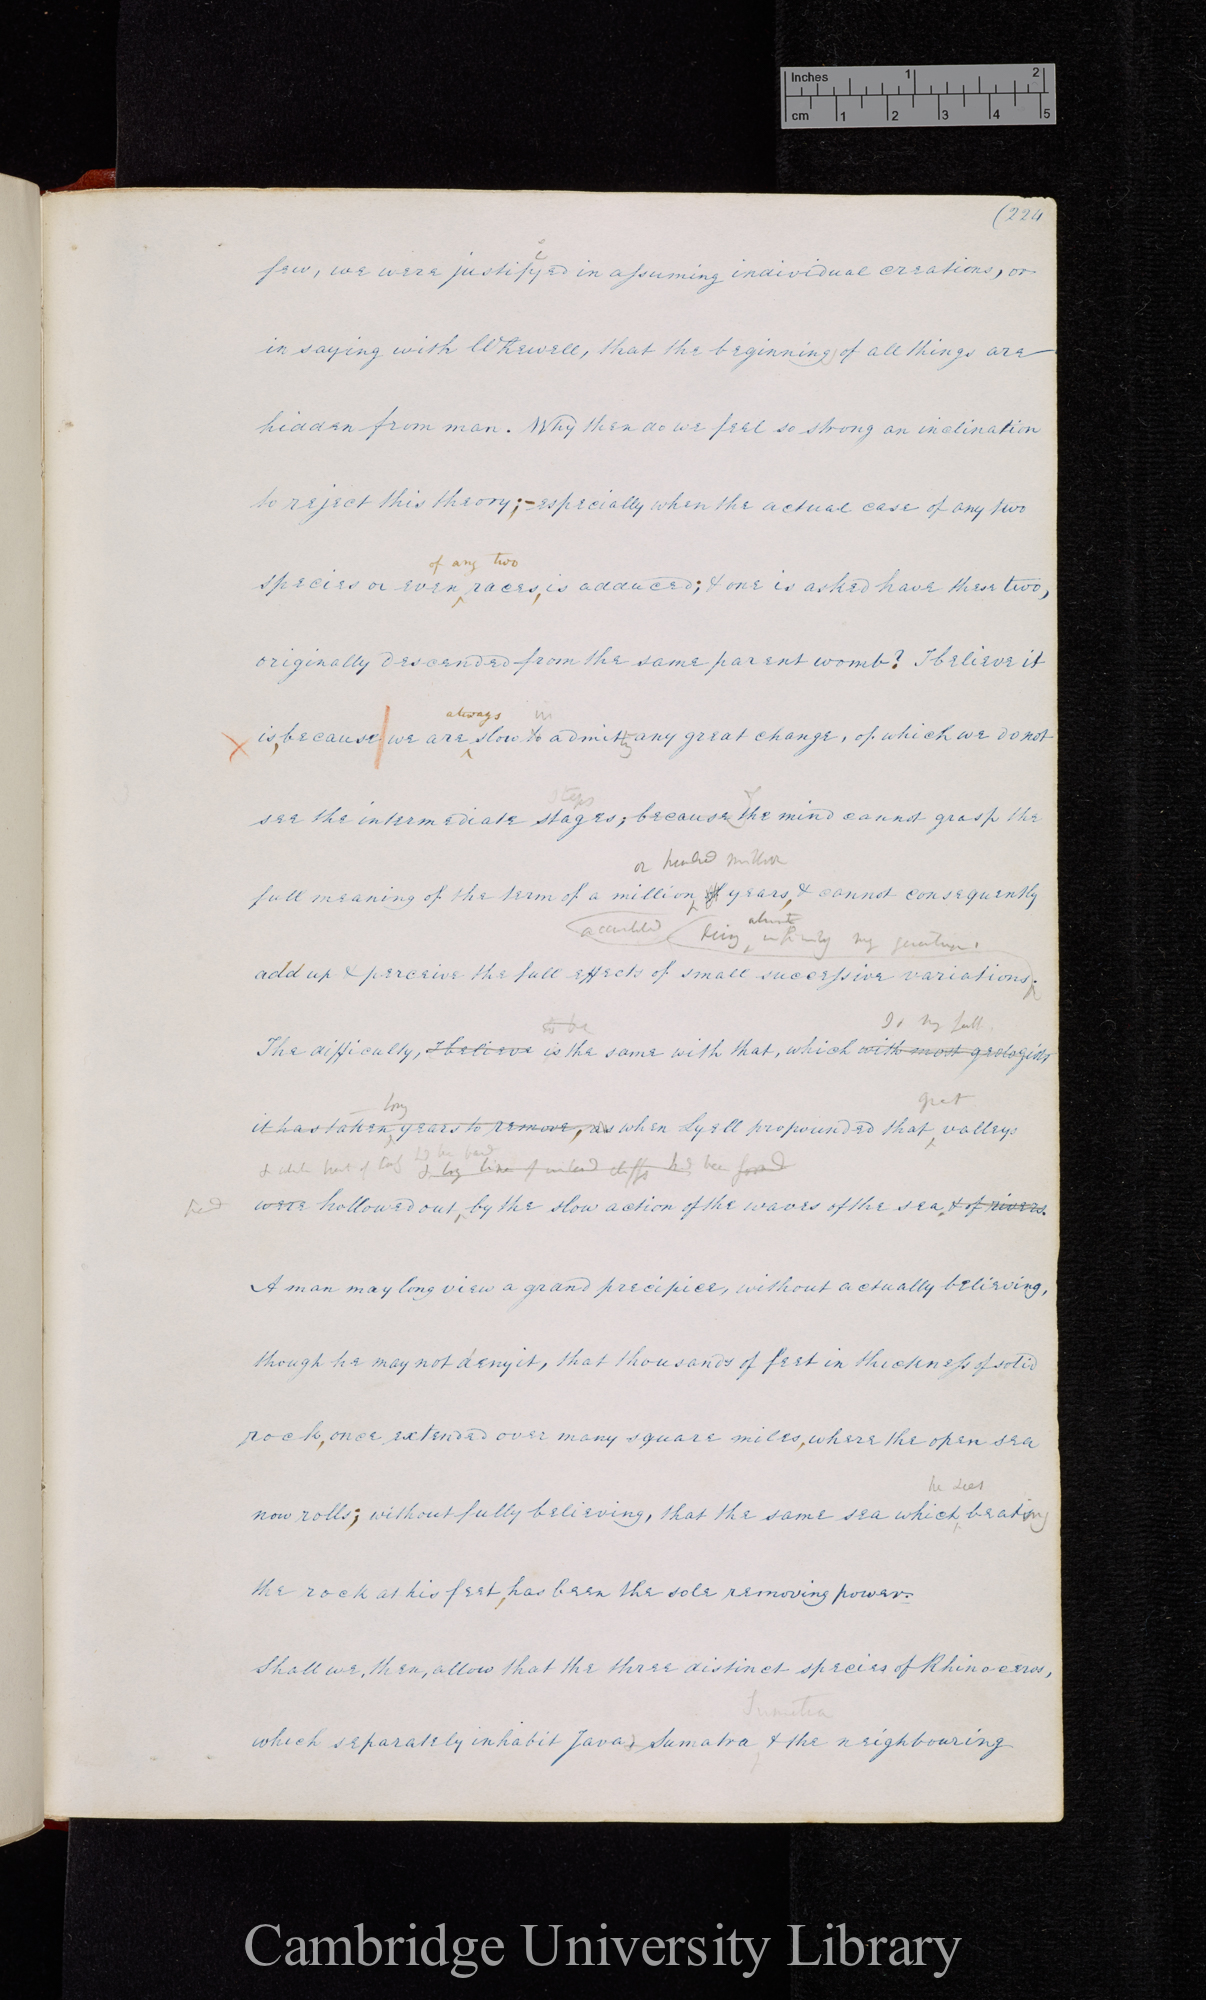 Inches 1 2
cm 1 2 3 4 5
(224
few, we were justifyed in assuming individual creations, or
in saying with Whewell, that the beginnings of all things are
hidden from man. Why then do we feel so strong an inclination
to reject this theory; – especially when the actual case of any two
of any two
species or even races, is adduced; & one is asked have these two,
originally descended from the same parent womb? I believe it
always in
is, because we are slow to admit any great change, of which we do not
steps
see the intermediate stages; because the mind cannot grasp the
or hundred million
full meaning of the term of a million of years, & cannot consequently
accumulated being almost infinitely
add up & perceive the full effects of small successive variations.
to be
The difficulty, I believe is the same with that, which with most geologists
long great
it has taken years to remove, as when Lyell propounded that valleys
& long lines of inland cliffs had been formed
were hollowed out, by the slow action of the waves of the sea, & of rivers.
A man may long view a grand precipice, without actually believing,
though he may not deny it, that thousands of feet in thickness of solid
rock, once extended over many square miles, where the open sea
he sees
now rolls; without fully believing, that the same sea which beating
the rock at his feet, has been the sole removing power.
Shall we, then, allow that the three distinct species of Rhinoceros,
Sumatra
which separately inhabit Java, Sumatra & the neighbouring
Cambridge University Library